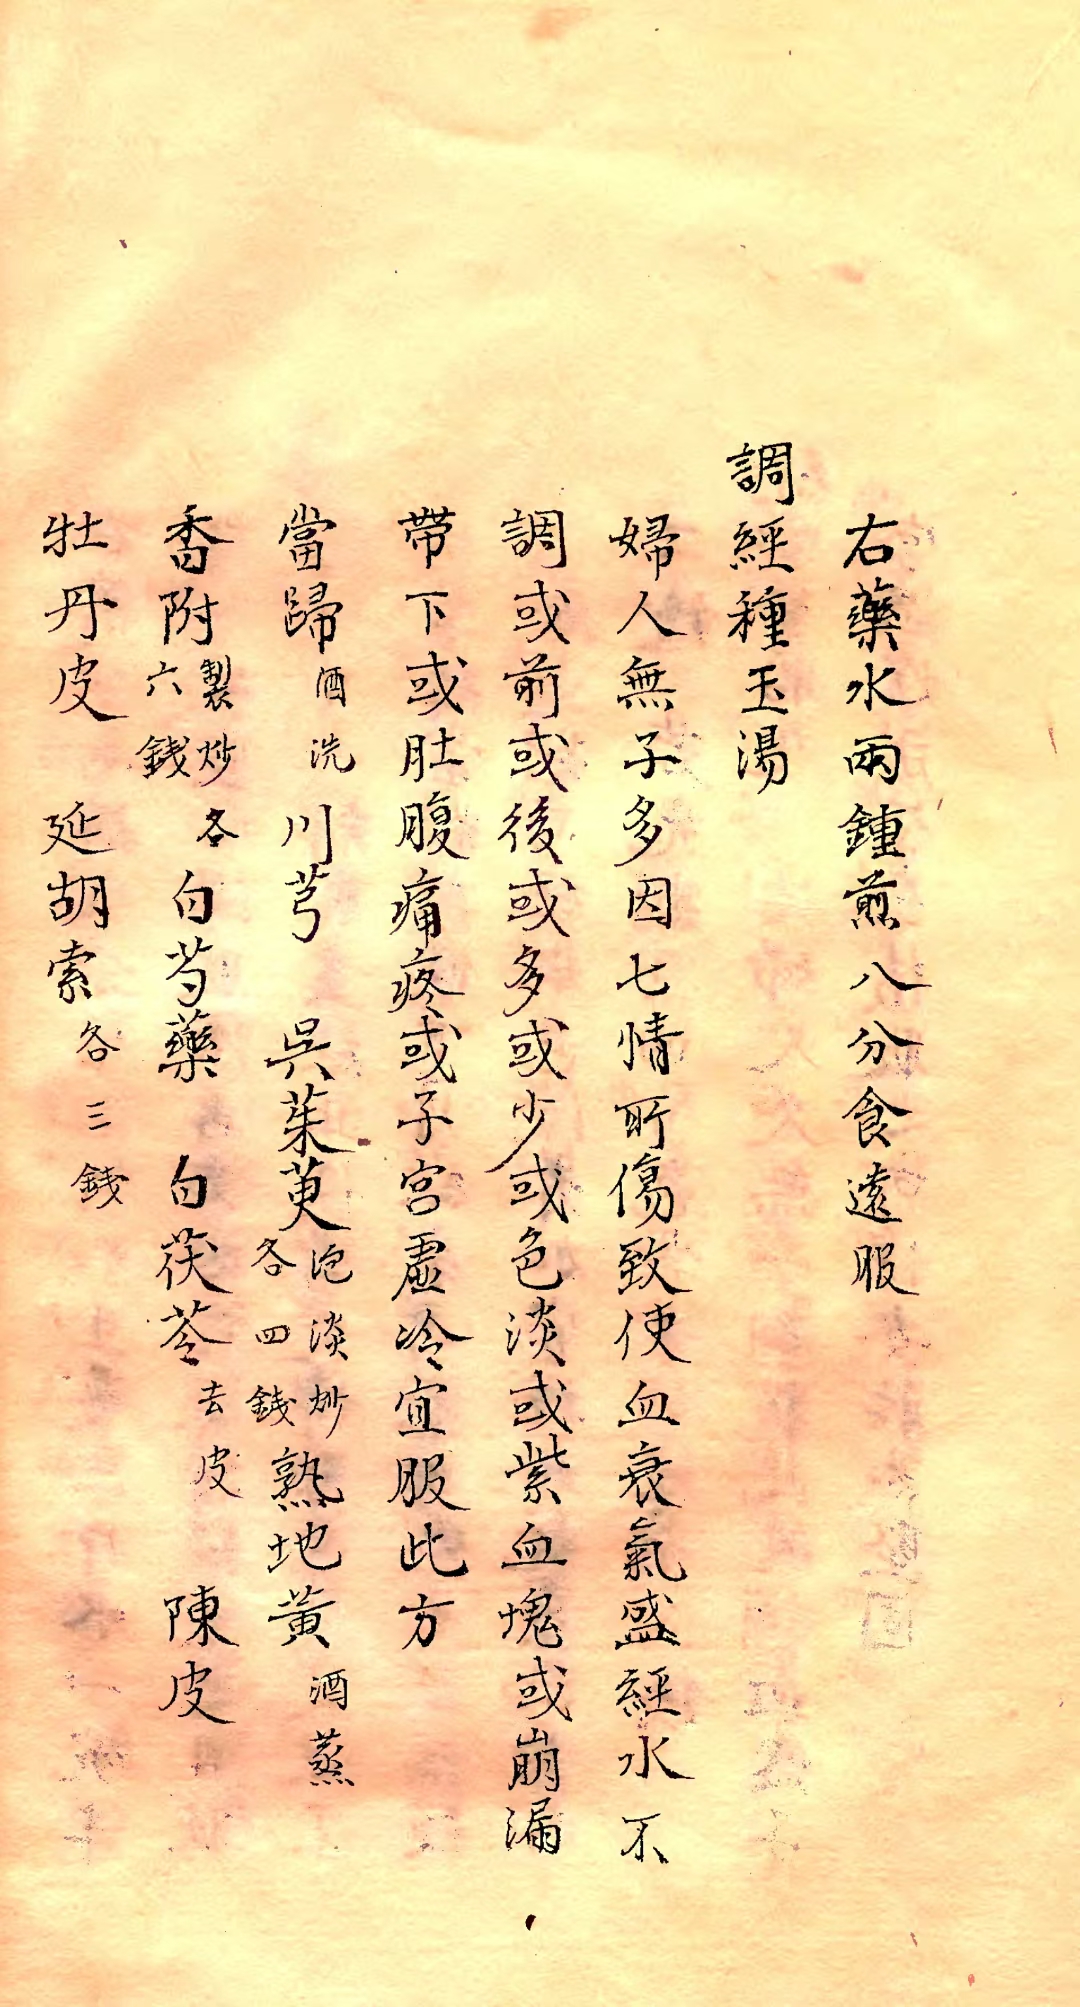 右藥水兩鍾煎八分食遠服
調經種玉湯
婦人無子多因七情所傷致使血衰氣盛經水不
調或前或後或多或少或色淡或紫血塊或崩漏
帶下或肚腹痛疼或子宮虛冷宜服此方
當歸酒洗 川芎 吳茱萸泡淡炒各四錢 熟地黃酒蒸
香附製炒各六錢 白芍藥 白茯苓去皮 陳皮
牡丹皮 延胡索各三錢